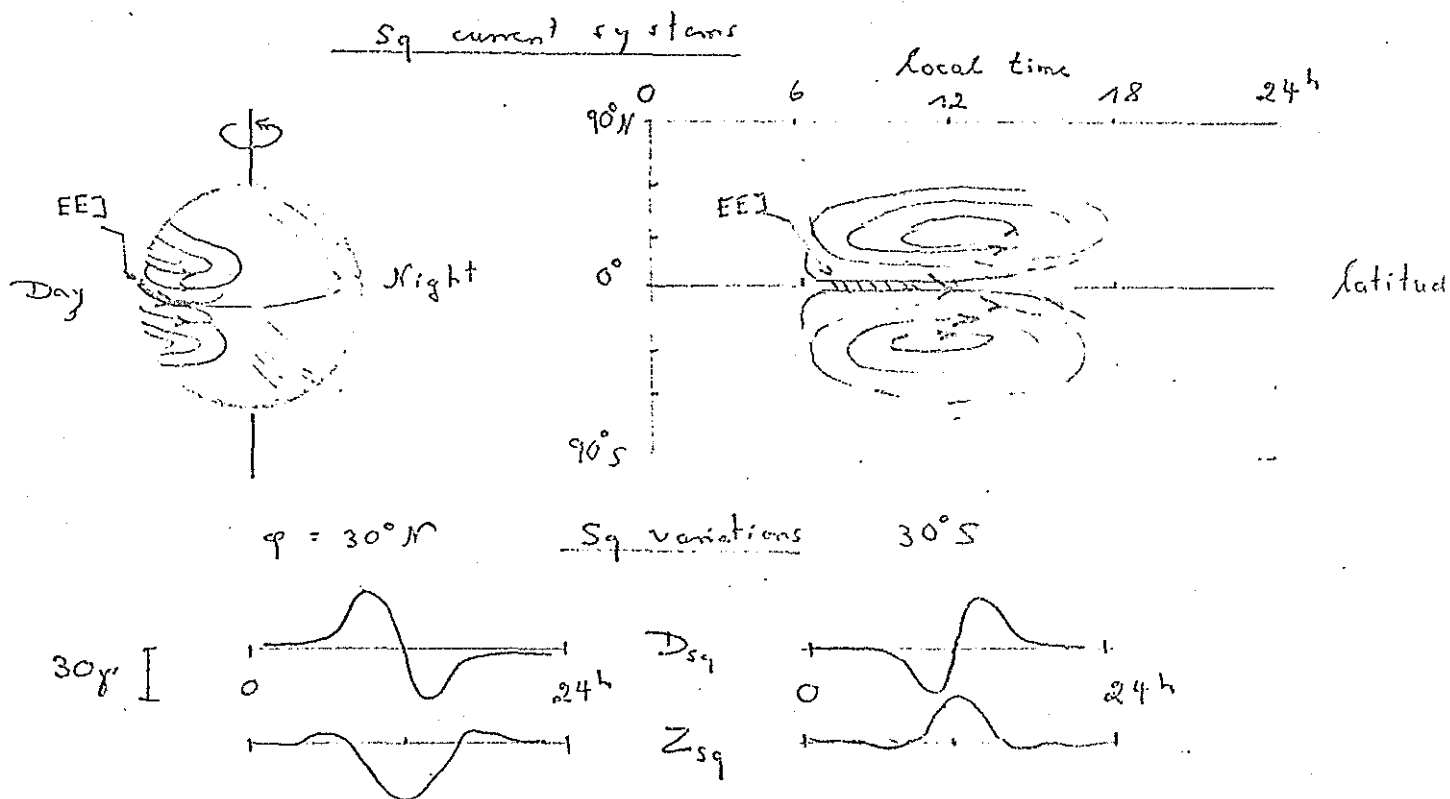 Sq current systems
Local time
0 6 12 18 24h
90°N
EEJ
EEJ
Day
Night
0°
Latitud
90°S
φ = 30°N
Sq variations
30°S
30γ
0
24h
Dsq
0
24h
Zsq